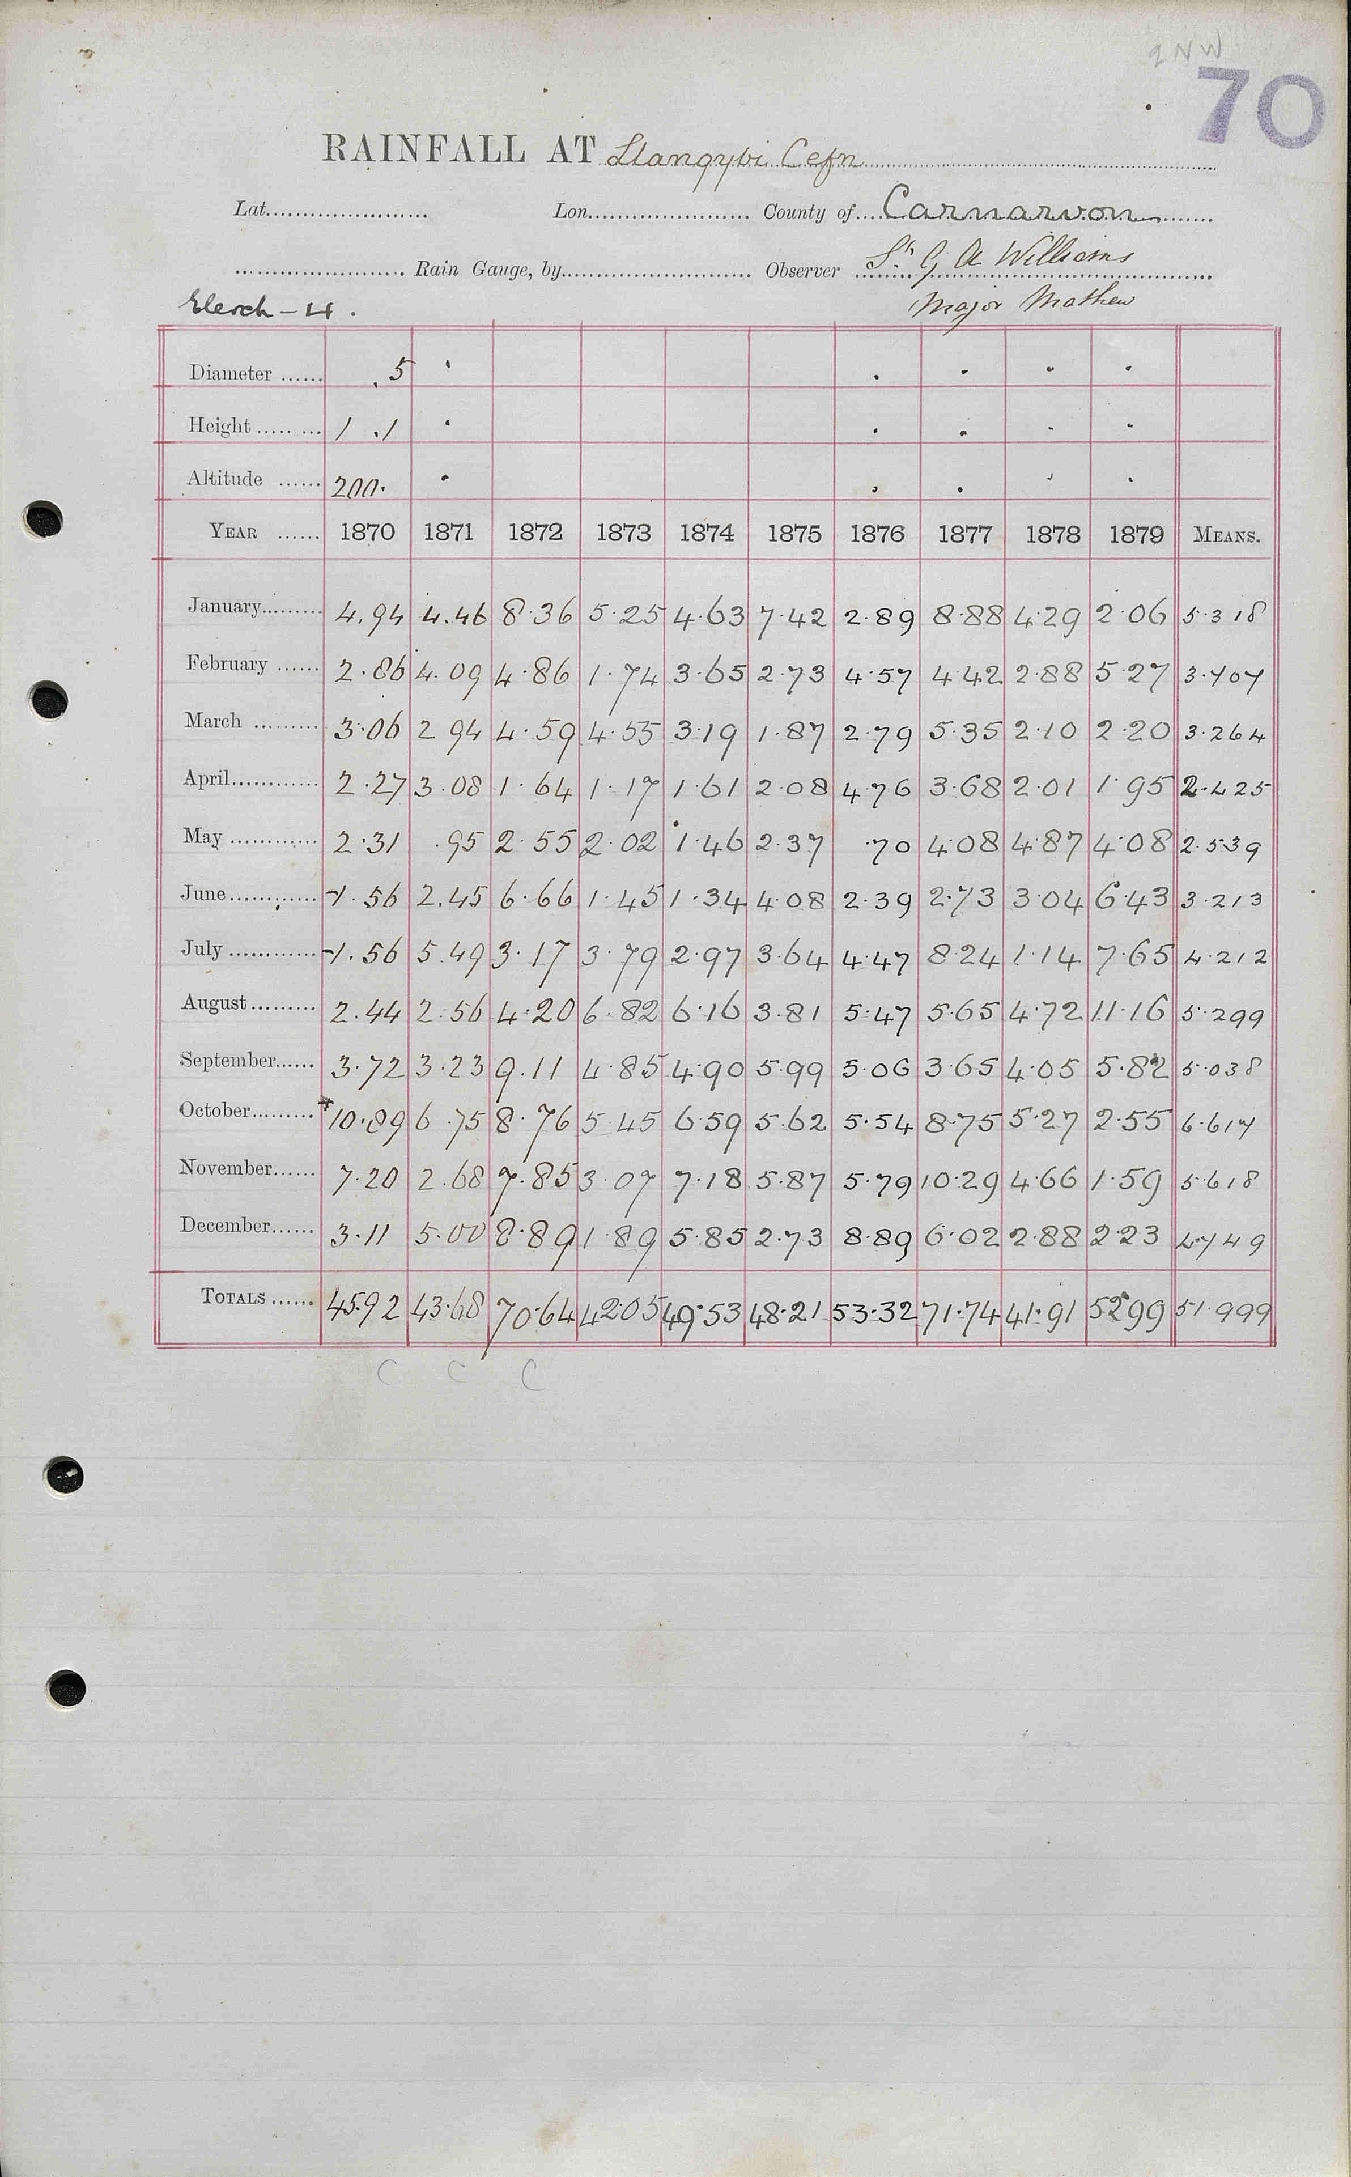 2NW
70
RAINFALL AT Llangybi Cefn
Lat. Lon. County of Carnarvon
Rain Gauge, by Observer G A Williams
Major Mathew
Diameter ...... .5
Height ........ 1 .1
Altitude ...... 200.
YEAR ...... 1870 1871 1872 1873 1874 1875 1876 1877 1878 1879 MEANS.
January 4.94 4.46 8.36 5.25 4.63 7.42 2.89 8.88 4.29 2.06 5.318
February 2.86 4.09 4.86 1.74 3.65 2.73 4.57 4.42 2.88 5.27 3.707
March 3.06 2.94 4.59 4.55 3.19 1.87 2.79 5.35 2.10 2.20 3.264
April 2.27 3.08 1.64 1.17 1.61 2.08 4.76 3.68 2.01 1.95 2.425
May 2.31 .95 2.55 2.02 1.46 2.37 .70 4.08 4.87 4.08 2.539
June 1.56 2.45 6.66 1.45 1.34 4.08 2.39 2.73 3.04 6.43 3.213
July 1.56 5.49 3.17 3.79 2.97 3.64 4.47 8.24 1.14 7.65 4.212
August 2.44 2.56 4.20 6.82 6.16 3.81 5.47 5.65 4.72 11.16 5.299
September 3.72 3.23 9.11 4.85 4.90 5.99 5.06 3.65 4.05 5.82 5.038
October * 10.89 6.75 8.76 5.45 6.59 5.62 5.54 8.75 5.27 2.55 6.617
November 7.20 2.68 7.85 3.07 7.18 5.87 5.79 10.29 4.66 1.59 5.618
December 3.11 5.00 8.89 1.89 5.85 2.73 8.89 6.02 2.88 2.23 4.749
TOTALS 45.92 43.68 70.64 42.05 49.53 48.21 53.32 71.74 41.91 52.99 51.999
C C C